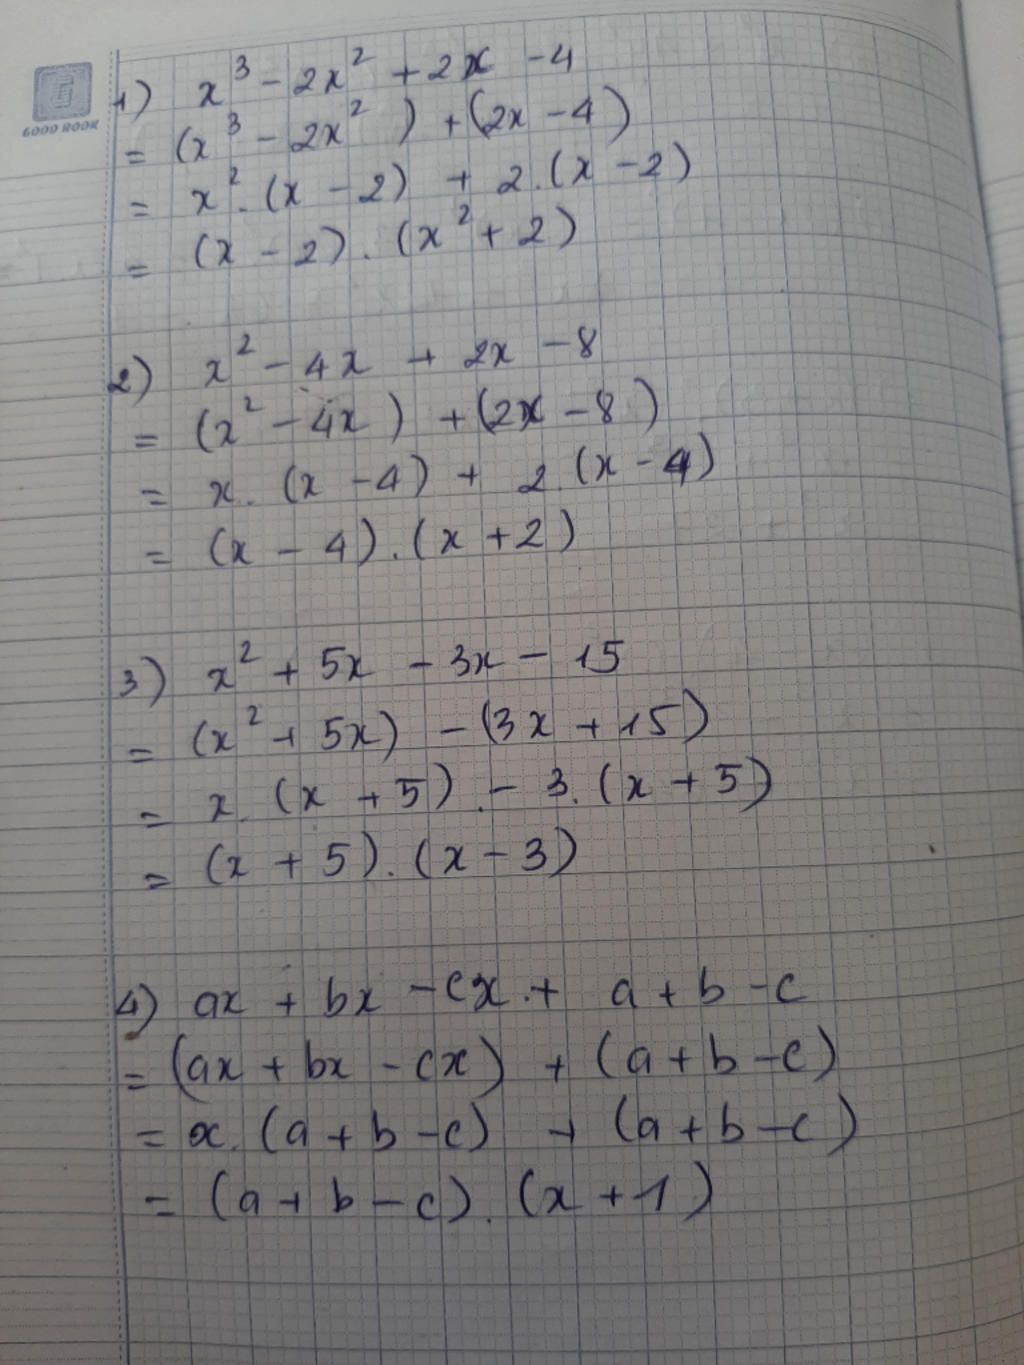 GOOD BOOK
1) x³ - 2x² + 2x - 4
= (x³ - 2x² ) + (2x - 4)
= x² . (x - 2) + 2 . (x - 2)
= (x - 2) . (x² + 2)
2) x² - 4x + 2x - 8
= (x² - 4x ) + (2x - 8 )
= x . (x - 4) + 2 . (x - 4)
= (x - 4) . (x + 2)
3) x² + 5x - 3x - 15
= (x² + 5x) - (3x + 15)
= x . (x + 5) - 3 . (x + 5)
= (x + 5) . (x - 3)
4) ax + bx - cx + a + b - c
= (ax + bx - cx) + (a + b - c)
= x . (a + b - c) + (a + b - c)
= (a + b - c) . (x + 1)